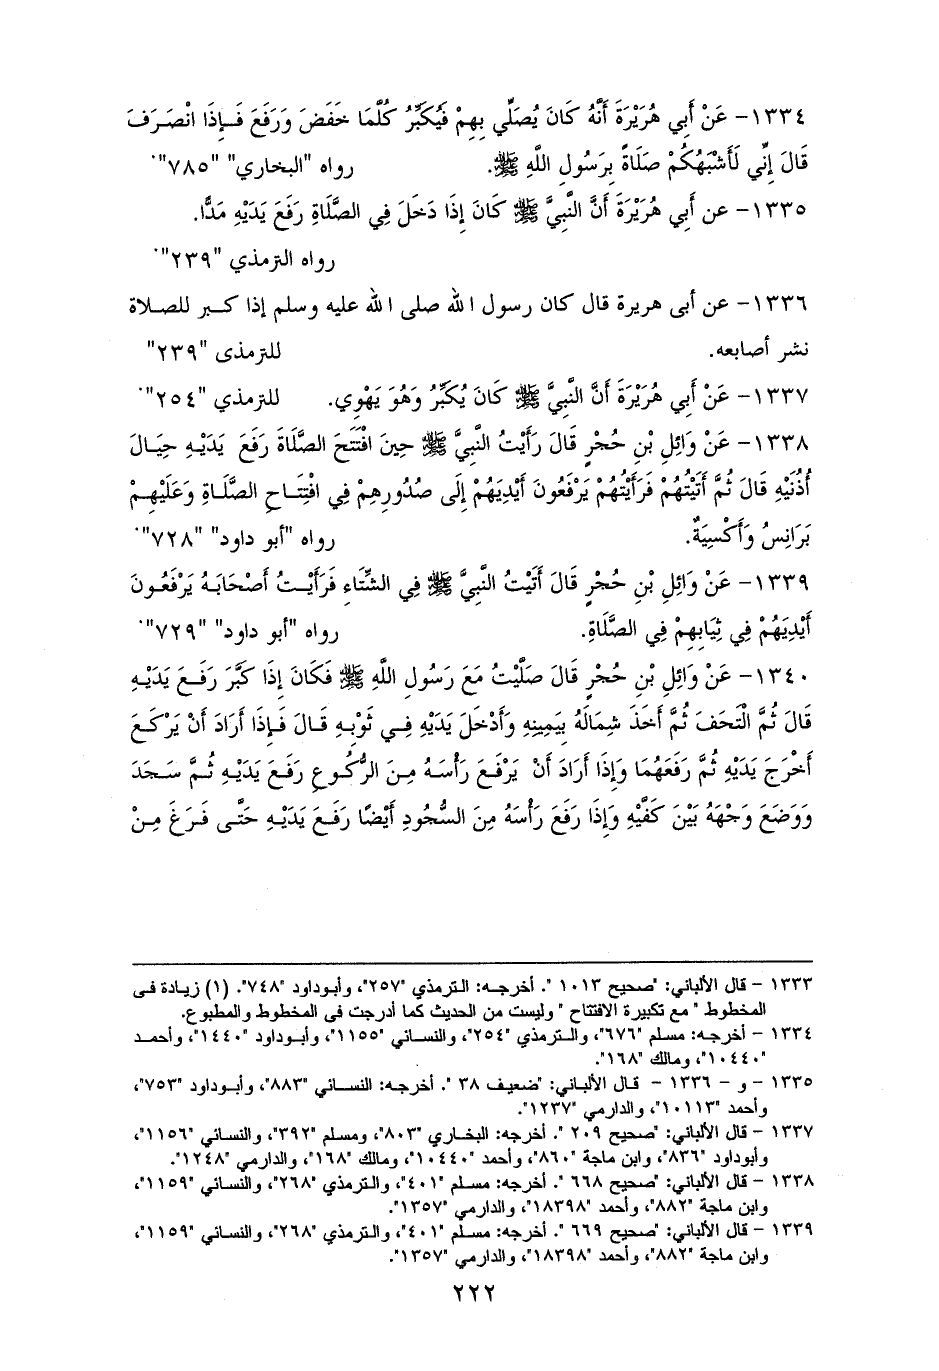 ١٣٣٤- عَنْ أَبِي هُرَيْرَةَ أَنَّهُ كَانَ يُصَلِّي بِهِمْ فَيُكَبِّرُ كُلَّمَا خَفَضَ وَرَفَعَ فَإِذَا انْصَرَفَ
قَالَ إِنِّي لَأَشْبَهُكُمْ صَلَاةً بِرَسُولِ اللَّهِ ﷺ. رواه "البخاري" "٧٨٥".
١٣٣٥- عن أَبِي هُرَيْرَةَ أَنَّ النَّبِيَّ ﷺ كَانَ إِذَا دَخَلَ فِي الصَّلَاةِ رَفَعَ يَدَيْهِ مَدًّا.
رواه الترمذي "٢٣٩".
١٣٣٦- عن أبى هريرة قال كان رسول الله صلى الله عليه وسلم إذا كبر للصلاة
نشر أصابعه. للترمذى "٢٣٩"
١٣٣٧- عَنْ أَبِي هُرَيْرَةَ أَنَّ النَّبِيَّ ﷺ كَانَ يُكَبِّرُ وَهُوَ يَهْوِي. للترمذي "٢٥٤".
١٣٣٨- عَنْ وَائِلِ بْنِ حُجْرٍ قَالَ رَأَيْتُ النَّبِيَّ ﷺ حِينَ افْتَتَحَ الصَّلَاةَ رَفَعَ يَدَيْهِ حِيَالَ
أُذُنَيْهِ قَالَ ثُمَّ أَتَيْتُهُمْ فَرَأَيْتُهُمْ يَرْفَعُونَ أَيْدِيَهُمْ إِلَى صُدُورِهِمْ فِي افْتِتَاحِ الصَّلَاةِ وَعَلَيْهِمْ
بَرَانِسُ وَأَكْسِيَةٌ. رواه "أبو داود" "٧٢٨".
١٣٣٩- عَنْ وَائِلِ بْنِ حُجْرٍ قَالَ أَتَيْتُ النَّبِيَّ ﷺ فِي الشِّتَاءِ فَرَأَيْتُ أَصْحَابَهُ يَرْفَعُونَ
أَيْدِيَهُمْ فِي ثِيَابِهِمْ فِي الصَّلَاةِ. رواه "أبو داود" "٧٢٩".
١٣٤٠- عَنْ وَائِلِ بْنِ حُجْرٍ قَالَ صَلَّيْتُ مَعَ رَسُولِ اللَّهِ ﷺ فَكَانَ إِذَا كَبَّرَ رَفَعَ يَدَيْهِ
قَالَ ثُمَّ الْتَحَفَ ثُمَّ أَخَذَ شِمَالَهُ بِيَمِينِهِ وَأَدْخَلَ يَدَيْهِ فِي ثَوْبِهِ قَالَ فَإِذَا أَرَادَ أَنْ يَرْكَعَ
أَخْرَجَ يَدَيْهِ ثُمَّ رَفَعَهُمَا وَإِذَا أَرَادَ أَنْ يَرْفَعَ رَأْسَهُ مِنَ الرُّكُوعِ رَفَعَ يَدَيْهِ ثُمَّ سَجَدَ
وَوَضَعَ وَجْهَهُ بَيْنَ كَفَّيْهِ وَإِذَا رَفَعَ رَأْسَهُ مِنَ السُّجُودِ أَيْضًا رَفَعَ يَدَيْهِ حَتَّى فَرَغَ مِنْ
١٣٣٣ - قال الألباني: "صحيح ١٠١٣ ". أخرجه: الترمذي "٢٥٧"، وأبوداود "٧٤٨". (١) زيادة فى
المخطوط " مع تكبيرة الافتتاح " وليست من الحديث كما أدرجت فى المخطوط والمطبوع.
١٣٣٤ - أخرجه: مسلم "٦٧٦"، والترمذي "٢٥٤"، والنسائي "١١٥٥"، وأبوداود "١٤٤٠"، وأحمد
"١٠٤٤٠"، ومالك "١٦٨".
١٣٣٥ - و - ١٣٣٦ - قال الألباني: "ضعيف ٣٨ ". أخرجه: النسائي "٨٨٣"، وأبوداود "٧٥٣"،
وأحمد "١٠١١٣"، والدارمي "١٢٣٧".
١٣٣٧ - قال الألباني: "صحيح ٢٠٩ ". أخرجه: البخاري "٨٠٣"، ومسلم "٣٩٢"، والنسائي "١١٥٦"،
وأبوداود "٨٣٦"، وابن ماجة "٨٦٠"، وأحمد "١٠٤٤٠"، ومالك "١٦٨"، والدارمي "١٢٤٨".
١٣٣٨ - قال الألباني: "صحيح ٦٦٨ ". أخرجه: مسلم "٤٠١"، والترمذي "٢٦٨"، والنسائي "١١٥٩"،
وابن ماجة "٨٨٢"، وأحمد "١٨٣٩٨"، والدارمي "١٣٥٧".
١٣٣٩ - قال الألباني: "صحيح ٦٦٩ ". أخرجه: مسلم "٤٠١"، والترمذي "٢٦٨"، والنسائي "١١٥٩"،
وابن ماجة "٨٨٢"، وأحمد "١٨٣٩٨"، والدارمي "١٣٥٧".
٢٢٢